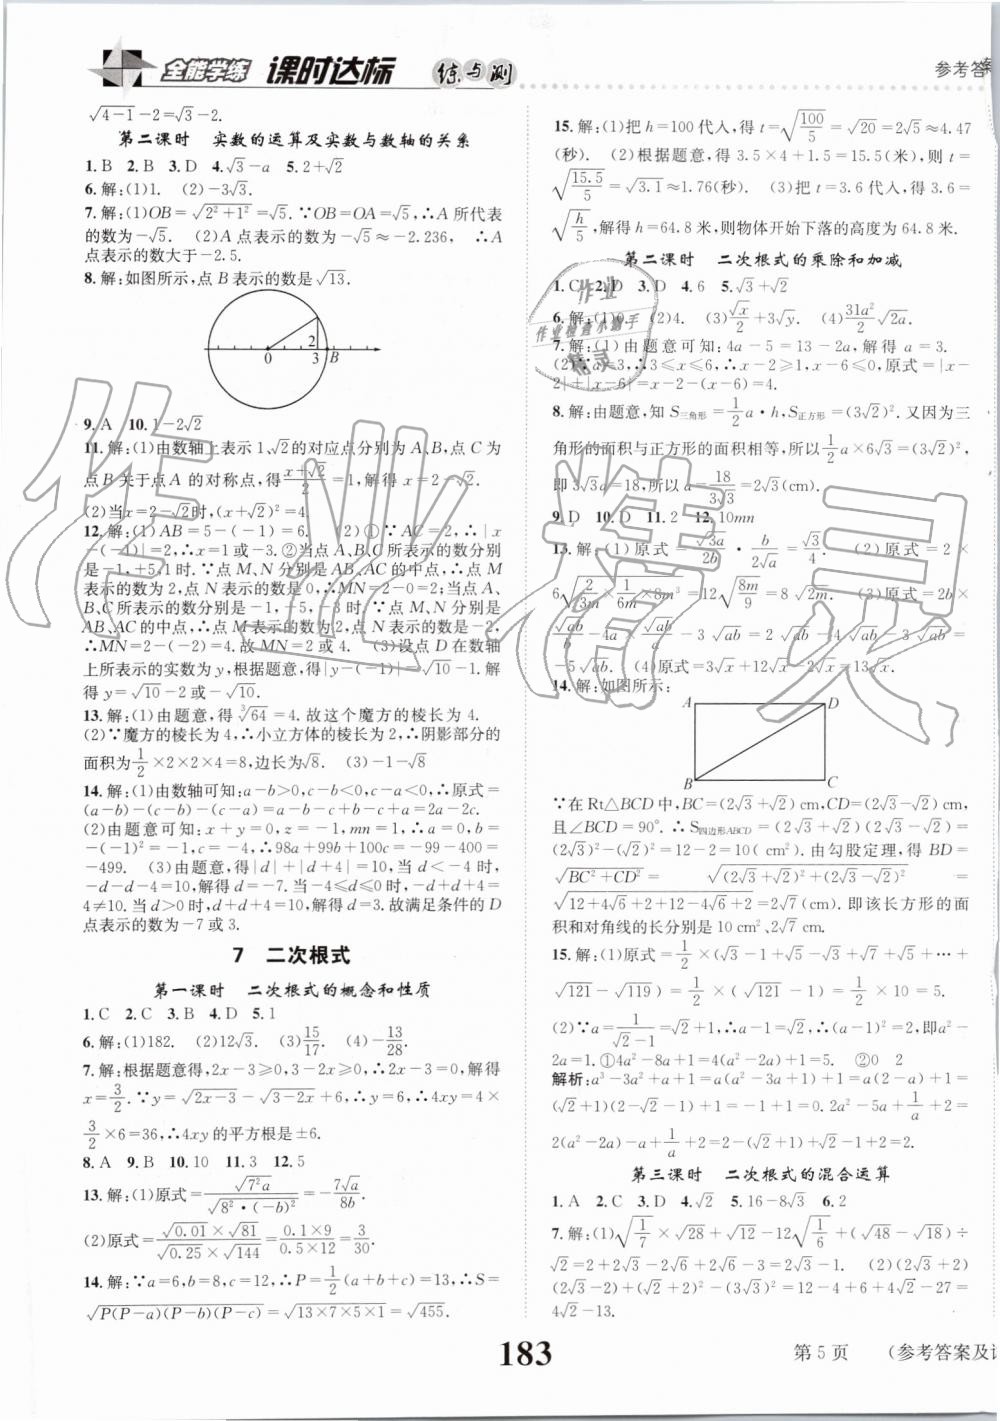 全能学练 课时达标 练与测
参考答案
√(4-1)-2=√3-2.
第二课时 实数的运算及实数与数轴的关系
1.B 2.B 3.D 4.√3-a 5.2+√2
6.解:(1)1. (2)-3√3.
7.解:(1)OB=√(2²+1²)=√5.∵OB=OA=√5,∴A所代表
的数为-√5. (2)A点表示的数为-√5≈-2.236, ∴A
点表示的数大于-2.5.
8.解:如图所示,点B表示的数是√13.
2
0 3 B
9.A 10.1-2√2
11.解:(1)由数轴上表示1,√2的对应点分别为A、B,点C为
点B关于点A的对称点,得(x+√2)/2=1,解得x=2-√2.
(2)当x=2-√2时,(x+√2)²=4.
12.解:(1)AB=5-(-1)=6. (2)①∵AC=2,∴|x
-(-1)|=2,∴x=1或-3.②当点A、B、C所表示的数分别
是-1,+5,1时.∵点M、N分别是AB、AC的中点,∴点M
表示的数为2,点N表示的数是0,∴MN=2-0=2;当点A、
B、C所表示的数分别是-1,+5,-3时.∵点M、N分别是
AB、AC的中点,∴点M表示的数为2,点N表示的数为-2,
∴MN=2-(-2)=4.故MN=2或4. (3)设点D在数轴
上所表示的实数为y,根据题意,得|y-(-1)|=√10-1.解
得y=√10-2或-√10.
13.解:(1)由题意,得³√64=4.故这个魔方的棱长为4.
(2)∵魔方的棱长为4,∴小立方体的棱长为2,∴阴影部分的
面积为1/2×2×2×4=8,边长为√8. (3)-1-√8
14.解:(1)由数轴可知:a-b>0,c-b<0,c-a<0,∴原式=
(a-b)-(c-b)-(c-a)=a-b-c+b-c+a=2a-2c.
(2)由题意可知:x+y=0,z=-1,mn=1,∴a=0,b=
-(-1)²=-1,c=-4,∴98a+99b+100c=-99-400=
-499. (3)由题意,得|d|+|d+4|=10.当d<-4时,
-d-d-4=10,解得d=-7.当-4≤d≤0时,-d+d+4=
4≠10.当d>0时,d+d+4=10,解得d=3.故满足条件的D
点表示的数为-7或3.
7 二次根式
第一课时 二次根式的概念和性质
1.C 2.C 3.B 4.D 5.1
6.解:(1)182. (2)12√3. (3)15/17. (4)-13/28.
7.解:根据题意得,2x-3≥0,3-2x≥0,解得
x=3/2.∵y=√(2x-3)-√(3-2x)+6,∴y=6,∴4xy=4×
3/2×6=36,∴4xy的平方根是±6.
8.A 9.B 10.10 11.3 12.5
13.解:(1)原式=√(7²a)/√(8²·(-b)²)=-7√a/8b.
(2)原式=(√0.01×√81)/(√0.25×√144)=(0.1×9)/(0.5×12)=3/20.
14.解:∵a=6,b=8,c=12,∴P=1/2(a+b+c)=13,∴S=
√(P(P-a)(P-b)(P-c))=√(13×7×5×1)=√455.
15.解:(1)把h=100代入,得t=√(100/5)=√20=2√5≈4.47
(秒). (2)根据题意,得3.5×4+1.5=15.5(米),则t=
√(15.5/5)=√3.1≈1.76(秒). (3)把t=3.6代入,得3.6=
√(h/5),解得h=64.8米,则物体开始下落的高度为64.8米.
第二课时 二次根式的乘除和加减
1.C 2.D 3.D 4.6 5.√3+√2
6.解:(1)9. (2)4. (3)√x/2+3√y. (4)31a²/2√2a.
7.解:(1)由题意可知:4a-5=13-2a,解得a=3.
(2)∵a=3,∴3≤x≤6,∴x-2≥1,x-6≤0,原式=|x-
2|+|x-6|=x-2-x+6=4.
8.解:由题意,知S三角形=1/2a·h,S正方形=(3√2)².又因为三
角形的面积与正方形的面积相等,所以1/2a×6√3=(3√2)²,
即3√3a=18,所以a=18/3√3=2√3(cm).
9.D 10.D 11.2 12.10mn
13.解:(1)原式=√3a/2b·b/2√a=√3/4. (2)原式=2×
6√(2/3m×1/6m×8m³)=12√(8m/9)=8√2m. (3)原式=2b×
√ab/b-4a×√ab/a-3√ab=2√ab-4√ab-3√ab=
-5√ab. (4)原式=3√x+12√x-2√x=13√x.
14.解:如图所示:
A D
B C
∵在Rt△BCD中,BC=(2√3+√2)cm,CD=(2√3-√2)cm,
且∠BCD=90°.∴S四边形ABCD=(2√3+√2)(2√3-√2)=
(2√3)²-(√2)²=12-2=10(cm²).由勾股定理,得BD=
√(BC²+CD²)=√((2√3+√2)²+(2√3-√2)²)=
√(12+4√6+2+12-4√6+2)=2√7(cm).即该长方形的面
积和对角线的长分别是10 cm²、2√7 cm.
15.解:(1)原式=1/2×(√3-1+√5-√3+√7+√5+…+
√121-√119)=1/2×(√121-1)=1/2×10=5.
(2)∵a=1/(√2-1)=√2+1,∴a-1=√2,∴(a-1)²=2,即a²-
2a=1.①4a²-8a+1=4(a²-2a)+1=5. ②0 2
解析:a³-3a²+a+1=a(a²-3a+1)+1=a(2-a)+1=
(√2+1)(2-√2-1)+1=-1+1=0.2a²-5a+1/a+2=
2(a²-2a)-a+1/a+2=2-(√2+1)+√2-1+2=2.
第三课时 二次根式的混合运算
1.A 2.C 3.D 4.√2 5.16-8√3 6.2
7.解:(1)√(1/7)×√28+√12-12√(1/6)+(√48-√18)÷
√2=2+2√3-2√6+2√6-3=2√3-1. (2)(2√3+2)
(2√3-2)+(2√3+√2)²-(3√3-2)²=12-4+6+4√2-27=
4√2-13.
183
第5页
（参考答案及
作业
作业检查小助手
精灵
作业精灵